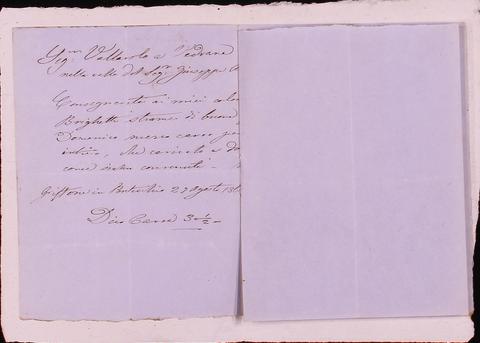 Sigr Vallarolo a Vedrana
nella valle del Sigr Giuseppe
Consegnerete ai miei colon
Brighetti strame di buona
Domenico mezzo carro per
intiero, che caricato e do
come siamo convenuti
in Butrilio 27 Agosto 186
Dico Carra 3 ½